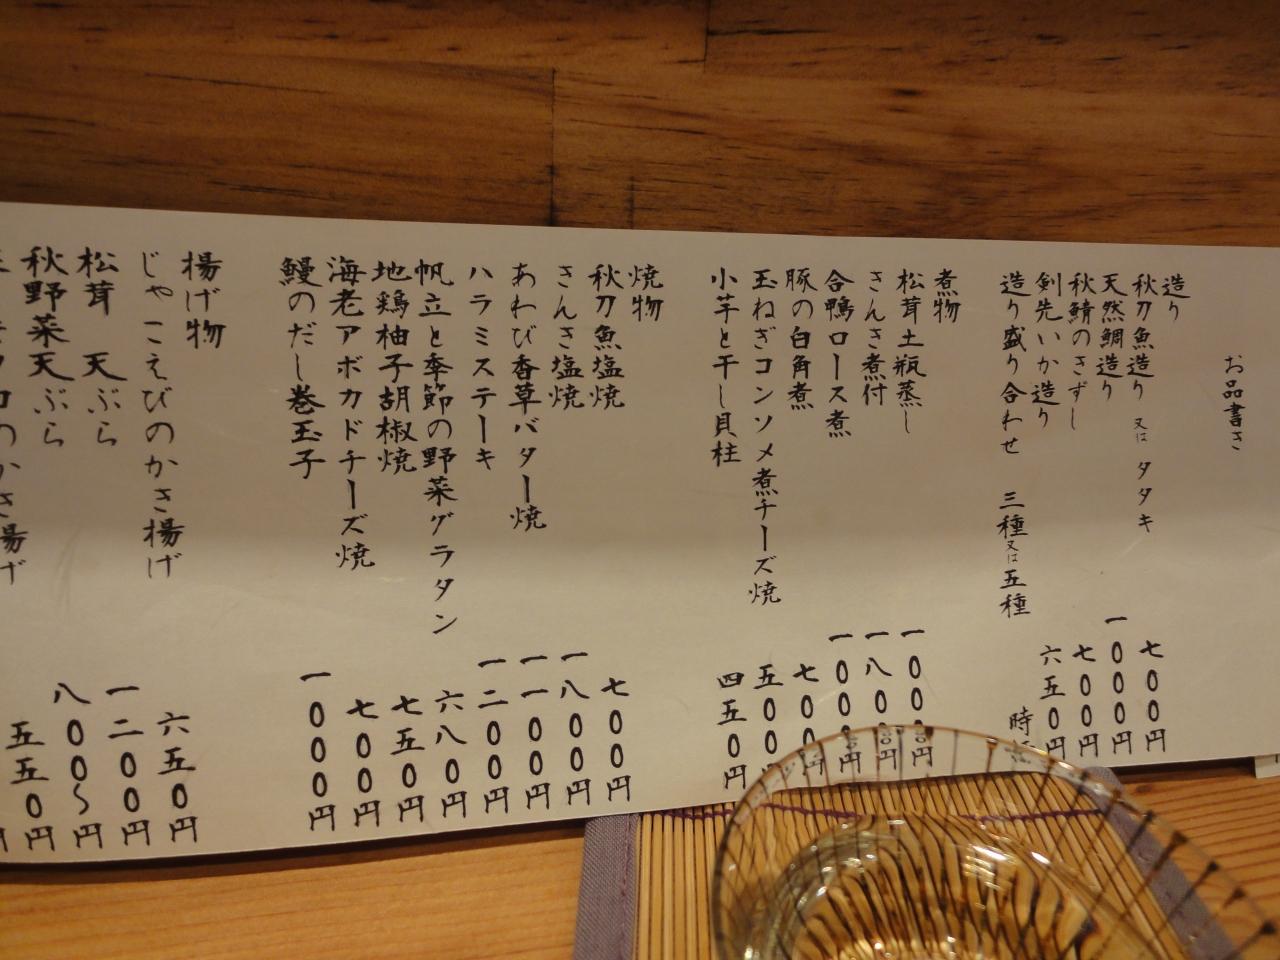 お品書き
造り
秋刀魚造り 又は タタキ 七00円
天然鯛造り 一000円
秋鯖のきずし 七00円
剣先いか造り 六五0円
造り盛り合わせ 三種又は五種 時
煮物
松茸土瓶蒸し 一000円
きんき煮付 一八00円
合鴨ロース煮 一000円
豚の白角煮 七00円
玉ねぎコンソメ煮チーズ焼 五00円
小芋と干し貝柱 四五0円
焼物
秋刀魚塩焼 七00円
きんき塩焼 一八00円
あわび香草バター焼 一一00円
ハラミステーキ 一二00円
帆立と季節の野菜グラタン 六八0円
地鶏柚子胡椒焼 七五0円
海老アボカドチーズ焼 七00円
鰻のだし巻玉子 一000円
揚げ物
じゃこえびのかき揚げ 六五0円
松茸 天ぷら 一二00円
秋野菜天ぷら 八00〜円
のかき揚げ 五五0円